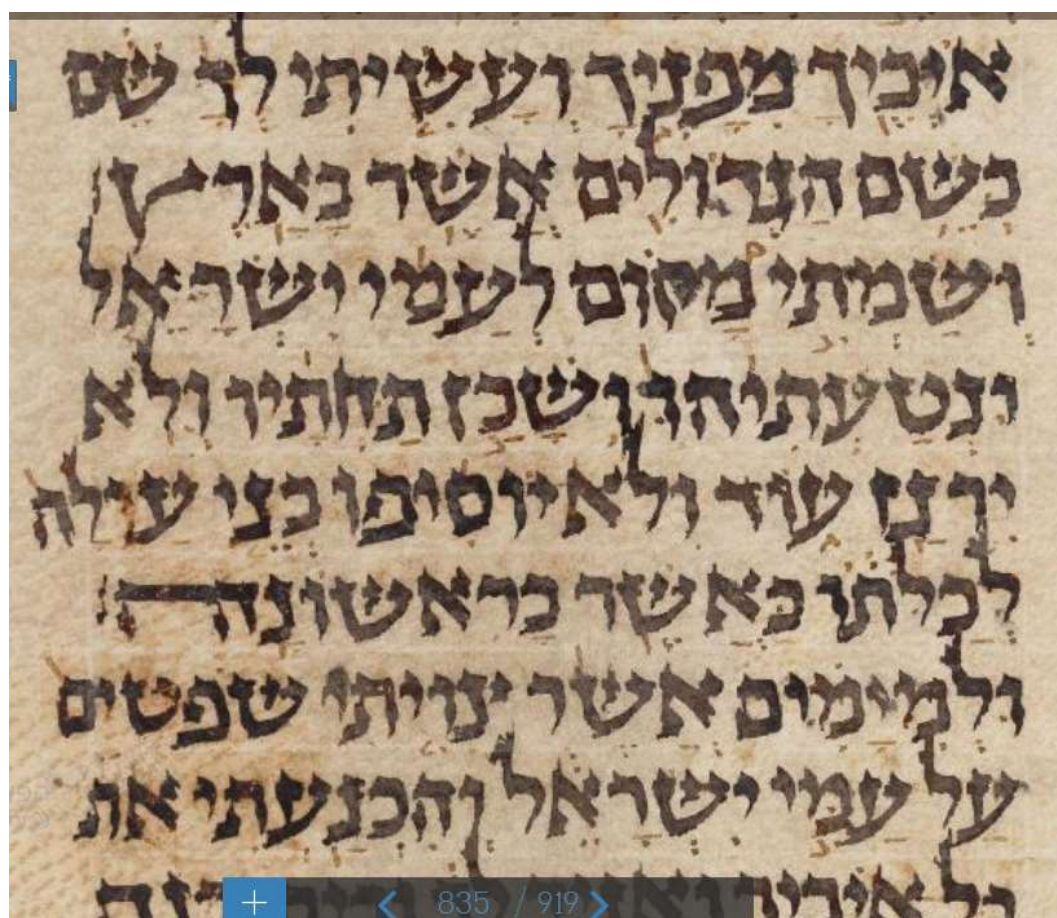 איביך מפניך ועשיתי לך שם
כשם הגדולים אשר בארץ׃
ושמתי מקום לעמי ישראל
ונטעתיהו ושכן תחתיו ולא
ירגז עוד ולא יוסיפו בני עולה
לבלתו כאשר בראשונה׃
ולמימים אשר צויתי שפטים
על עמי ישראל והכנעתי את
כל איביך
+ 835 / 919